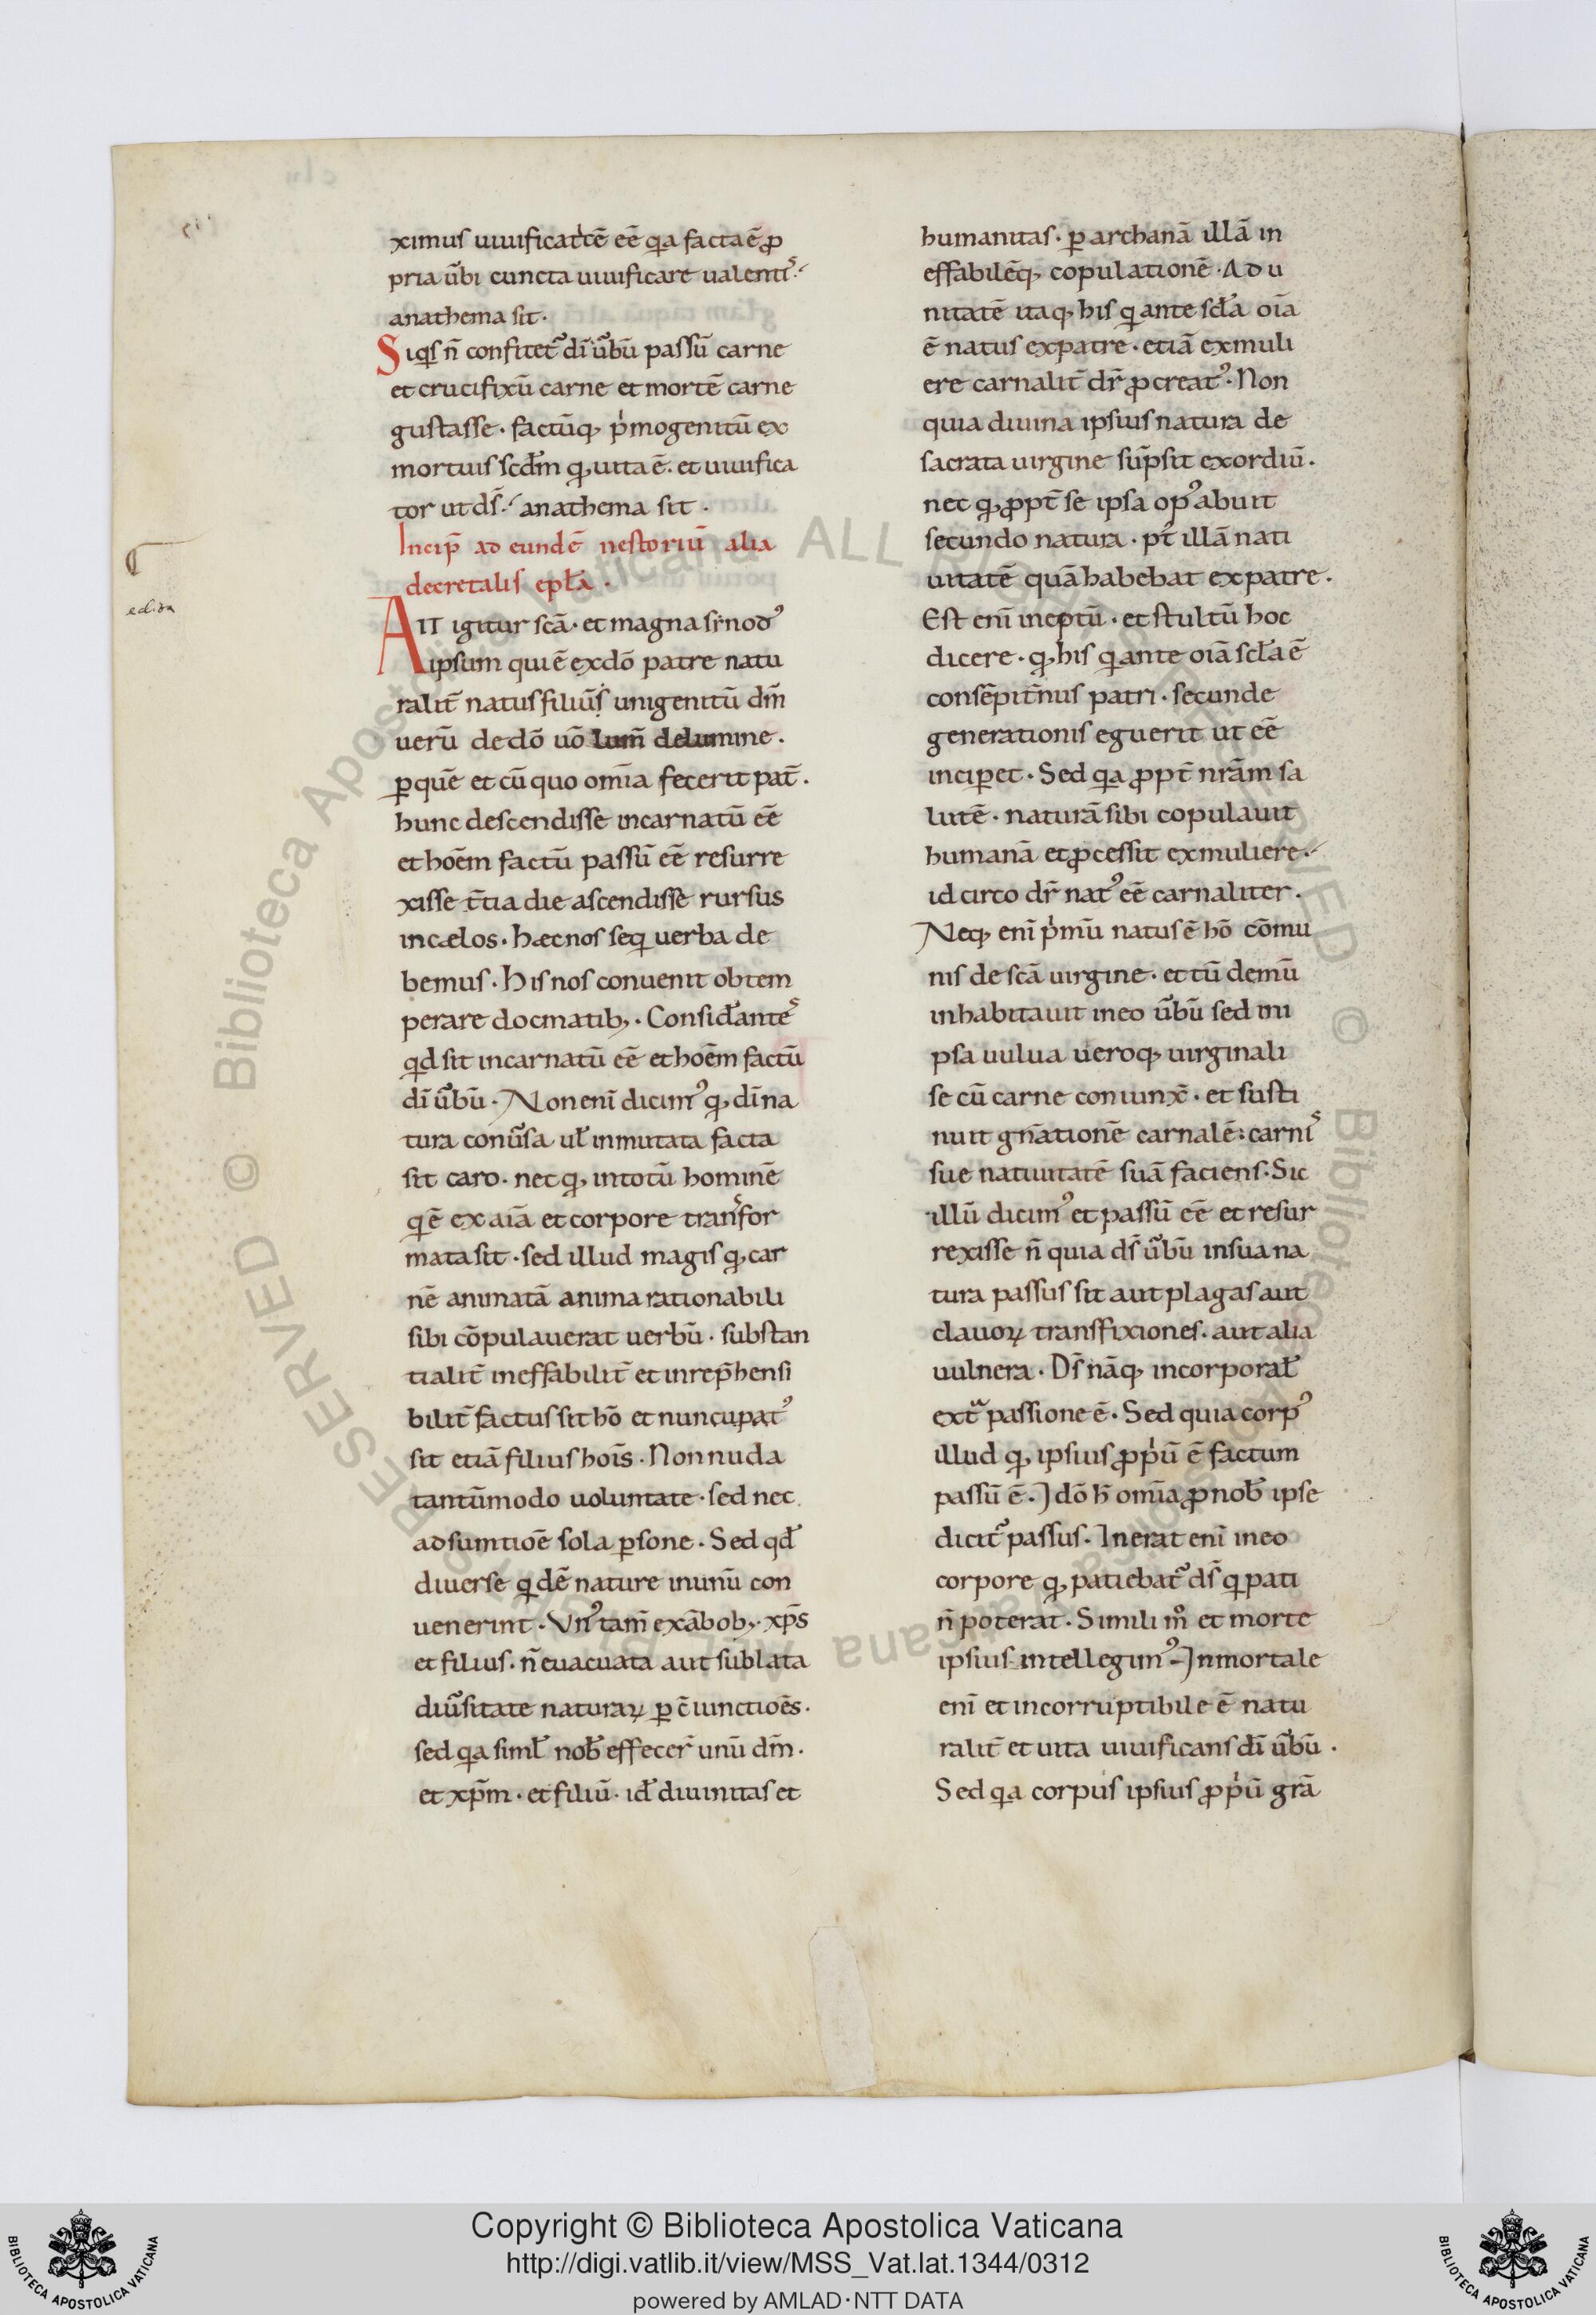 ximus uiuificatͥcē eē qͥa facta ē ꝓ
pria ūbi cuncta uiuificare ualentiˢ.
anathema sit.
Siqͥs n̄ confitet᷑ dī ūbū passū carne
et crucifixū carne et mortē carne
gustasse. factūq, pͥmogenitū ex
mortuis scdm̄ q, uita ē. et uiuifica
tor ut ds̄. anathema sit.
Incip̄ ad eundē nestoriū alia
decretalis epła.
AIT igitur scā. et magna sinodꝰ
ipsum qui ē ex dō patre natu
ralit̄ natus filiūs unigenitū dm̄
uerū de dō uō lum̄ de lumine.
ꝑ quē et cū quo omīa fecerit pat̄.
hunc descendisse incarnatū eē
et hoēm factū passū eē resurre
xisse t̄tia die ascendisse rursus
in cælos. hæc nos seqͥ uerba de
bemus. His nos conuenit obtem
perare docmatib,. Considantēˢ
qͥd sit incarnatū eē et hoēm factū
dī ūbū. Non enī dicimꝰ q, dī na
tura conūsa uł inmutata facta
sit caro. nec q, in totū hominē
qͥ ē ex aīa et corpore transfor
mata sit. sed illud magis q, car
nē animatā anima rationabili
sibi cōpulauerat uerbū. substan
tialit̄ ineffabilit̄ et inrep̄hensi
bilit̄ factus sit hō et nuncupatꝰ
sit etiā filius hoīs. Non nuda
tantūmodo uoluntate. sed nec
adsumtioē sola ꝑsone. Sed qđ
diuerse qͥdē nature in unū con
uenerint. Vnꝰ tam̄ ex ābob,. xp̄s
et filius. n̄ euacuata aut sublata
diūsitate naturaꝝ ꝑ c̄iunctioēs.
sed qͥa simł nob̄ effecer̄ unū dm̄.
et xp̄m. et filiū. id̄ diuinitas et
humanitas. ꝑ archanā illā in
effabilēq, copulationē. Ad u
nitatē itaq, his qͥ ante scła oīa
ē natus ex patre. etiā ex muli
ere carnalit̄ dr̄ ꝓcreatꝰ. Non
quia diuina ipsius natura de
sacrata uirgine sūpsit exordiū.
nec q, ꝓpt̄ se ipsa opꝰ abuit
secundo natura. pt̄ illā nati
uitatē quā habebat ex patre.
Est enī ineptū. et stultū hoc
dicere. q, his qͥ ante oīa scła ē
consēpit̄nus patri. secunde
generationis eguerit ut eē
inciꝑet. Sed qͥa ꝓpt̄ nr̄am sa
lutē. naturā sibi copulauit
humanā et ꝓcessit ex muliere.
id circo dr̄ natꝰ eē carnaliter.
Neq, enī pͥmū natus ē hō cōmu
nis de scā uirgine. et tū demū
inhabitauit in eo ūbū sed in i
psa uulua ueroq, uirginali
se cū carne coniunx̄. et susti
nuit gn̄ationē carnalē: carniˢ
sue natiuitatē suā faciens. Sic
illū dicimꝰ et passū eē et resur
rexisse n̄ quia ds̄ ūbū in sua na
tura passus sit aut plagas aut
clauoꝝ transfixiones. aut alia
uulnera. Ds̄ nāq, incorporał
extᵃ passione ē. Sed quia corpꝰ
illud q, ipsius ꝓpͥū ē factum
passū ē. Idō h̄ omīa ꝓ nob̄ ipse
dicit᷑ passus. Inerat enī in eo
corpore q, patiebat᷑ ds̄ qͥ pati
n̄ poterat. Simili mº et morte
ipsius intellegimꝰ. Inmortale
enī et incorruptibile ē natu
ralit̄ et uita uiuificans dī ūbū.
Sed qͥa corpus ipsius ꝓpͥū grā
Copyright © Biblioteca Apostolica Vaticana
http://digi.vatlib.it/view/MSS_Vat.lat.1344/0312
powered by AMLAD·NTT DATA